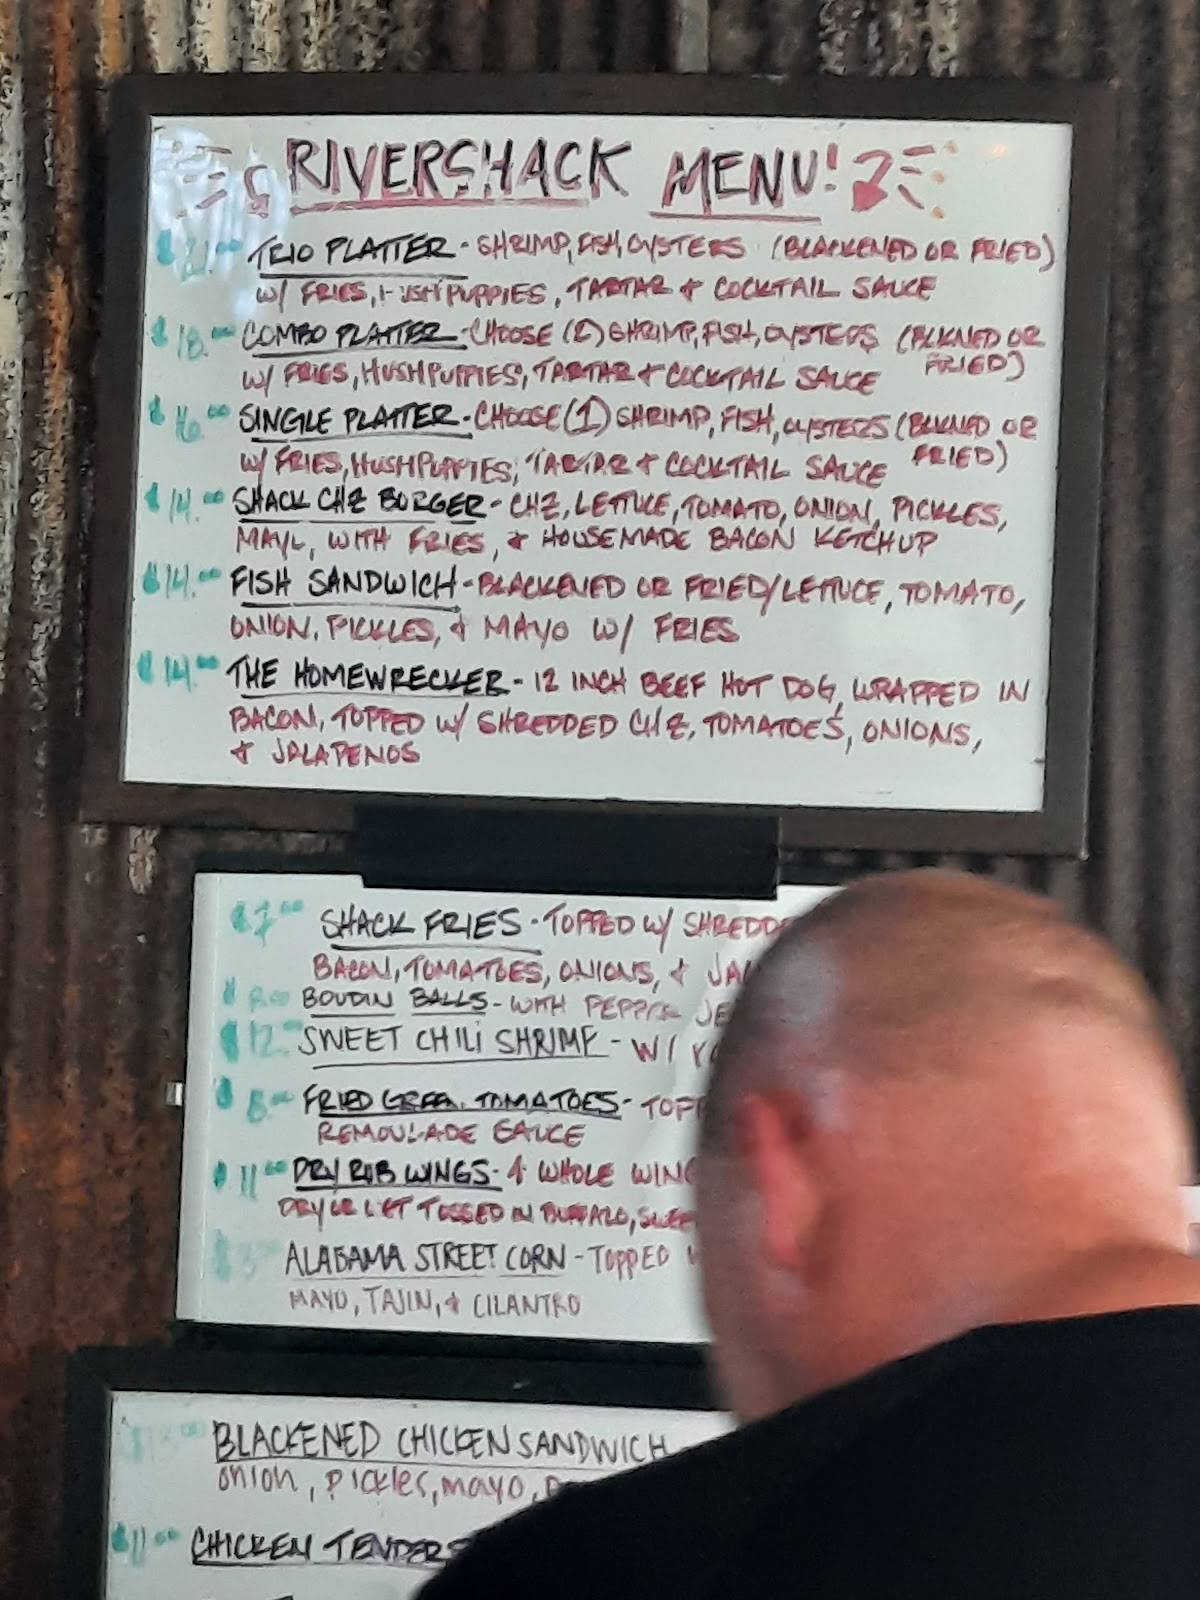 RIVERSHACK MENU!
$21.00 TRIO PLATTER - SHRIMP, FISH, OYSTERS (BLACKENED OR FRIED)
W/ FRIES, HUSHPUPPIES, TARTAR & COCKTAIL SAUCE
$18.00 COMBO PLATTER - CHOOSE (2) SHRIMP, FISH, OYSTERS (BLKNED OR
FRIED)
W/ FRIES, HUSHPUPPIES, TARTAR & COCKTAIL SAUCE
$16.00 SINGLE PLATTER - CHOOSE (1) SHRIMP, FISH, OYSTERS (BLKNED OR
FRIED)
W/ FRIES, HUSHPUPPIES, TARTAR & COCKTAIL SAUCE
$14.00 SHACK CHZ BURGER - CHZ, LETTUCE, TOMATO, ONION, PICKLES,
MAYO, WITH FRIES, & HOUSEMADE BACON KETCHUP
$14.00 FISH SANDWICH - BLACKENED OR FRIED/LETTUCE, TOMATO,
ONION, PICKLES, & MAYO W/ FRIES
$14.00 THE HOMEWRECKER - 12 INCH BEEF HOT DOG, WRAPPED IN
BACON, TOPPED W/ SHREDDED CHZ, TOMATOES, ONIONS,
& JALAPENOS
$7.00 SHACK FRIES - TOPPED W/ SHREDD
BACON, TOMATOES, ONIONS, & JA
BOUDIN BALLS - WITH PEPPER JE
$12.00 SWEET CHILI SHRIMP - W/
$8.00 FRIED GREEN TOMATOES - TOPP
REMOULADE SAUCE
$11.00 DRY RUB WINGS - 4 WHOLE WING
DRY OR WET TOSSED IN BUFFALO, SWEE
ALABAMA STREET CORN - TOPPED
MAYO, TAJIN, & CILANTRO
BLACKENED CHICKEN SANDWICH
onion, pickles, mayo,
$11.00 CHICKEN TENDERS